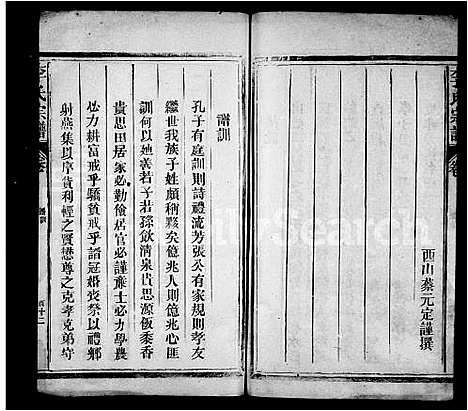 西山蔡元定謹撰
譜訓
孔子有庭訓則詩禮流芳張公有家規則孝友
繼世我族子姓頗稱夥矣億兆人則億兆心匪
訓何以她羨若子若孫飲清泉貴思源飯黍香
貴思田居家必勤儉居官必謹雍士必力學農
必力耕富戒乎驕貧戒乎諂冠婚喪祭以禮鄉
射燕集以序貨利輕之賢懋尊之克孝克弟守